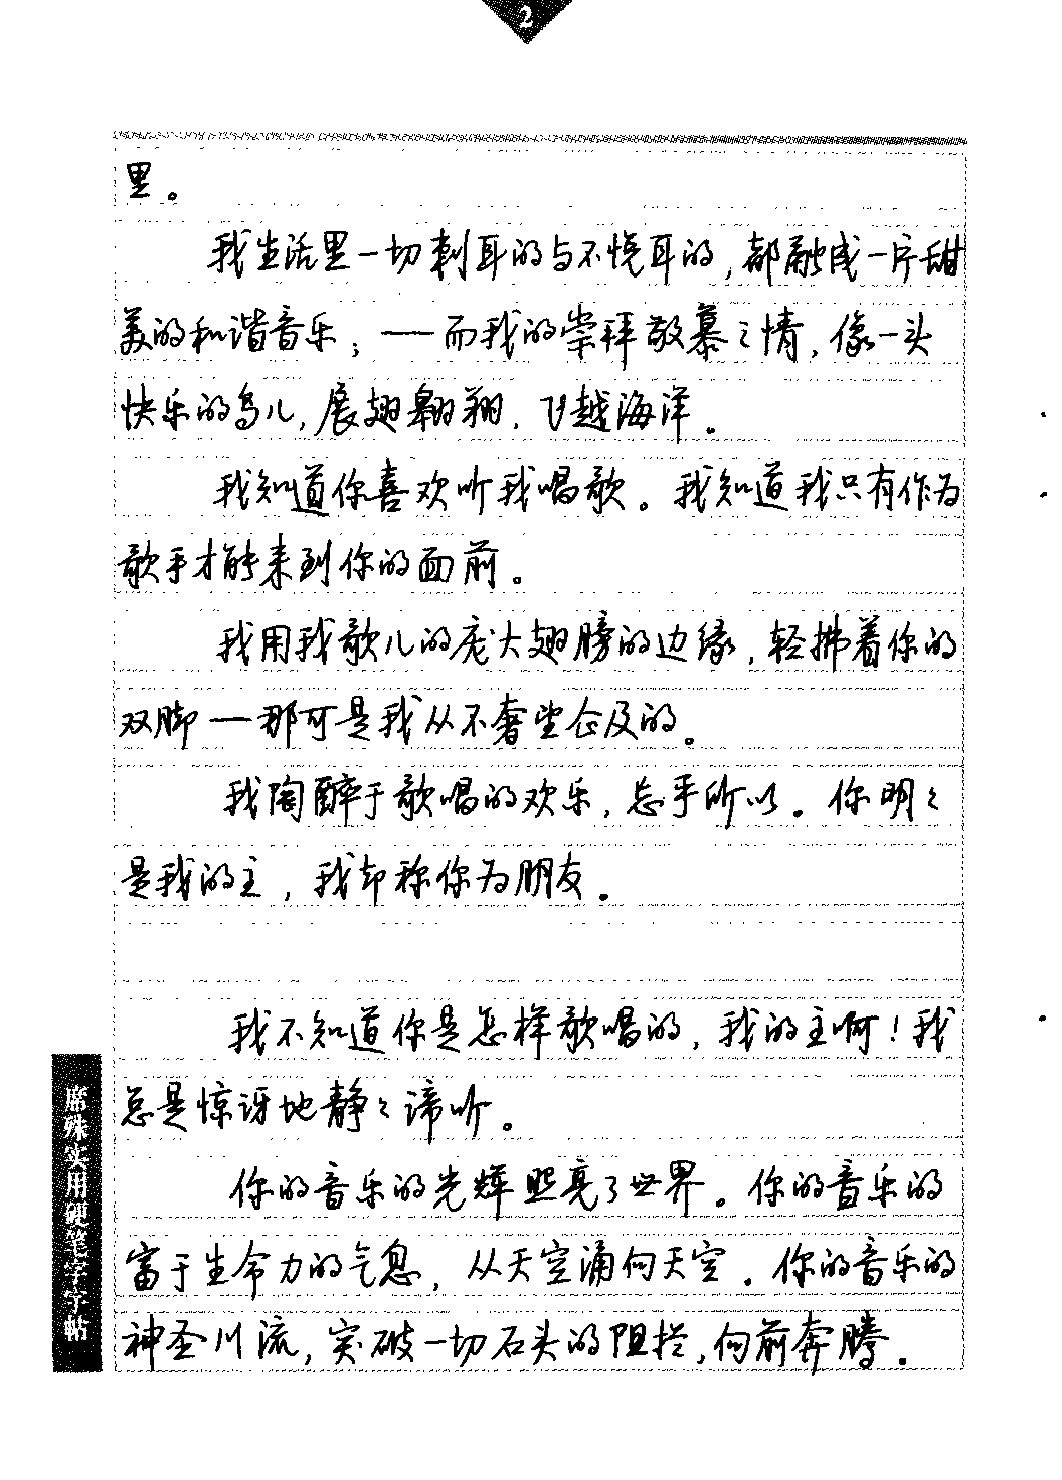 2
里。
我生活里一切刺耳的与不悦耳的,都融成一片甜
美的和谐音乐;——而我的崇拜敬慕之情,像一头
快乐的鸟儿,展翅翱翔,飞越海洋。
我知道你喜欢听我唱歌。我知道我只有作为
歌手才能来到你的面前。
我用我歌儿的庞大翅膀的边缘,轻拂着你的
双脚—那可是我从不奢望企及的。
我陶醉于歌唱的欢乐,忘乎所以。你明々
是我的主,我却称你为朋友。
我不知道你是怎样歌唱的,我的主啊!我
总是惊讶地静々谛听。
你的音乐的光辉照亮了世界。你的音乐的
富于生命力的气息,从天空涌向天空。你的音乐的
神圣川流,突破一切石头的阻拦,向前奔腾。
席殊实用硬笔字字帖